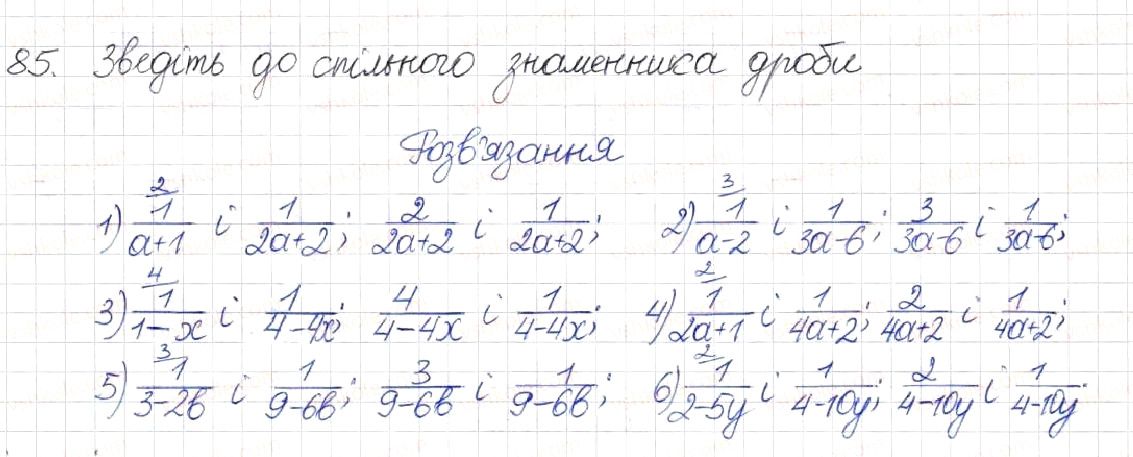 85. Зведіть до спільного знаменника дроби
Розв'язання
1) 2/ 1/(a+1) і 1/(2a+2); 2/(2a+2) і 1/(2a+2); 2) 3/ 1/(a-2) і 1/(3a-6); 3/(3a-6) і 1/(3a-6);
3) 4/ 1/(1-x) і 1/(4-4x); 4/(4-4x) і 1/(4-4x); 4) 2/ 1/(2a+1) і 1/(4a+2); 2/(4a+2) і 1/(4a+2);
5) 3/ 1/(3-2в) і 1/(9-6в); 3/(9-6в) і 1/(9-6в); 6) 2/ 1/(2-5y) і 1/(4-10y); 2/(4-10y) і 1/(4-10y)